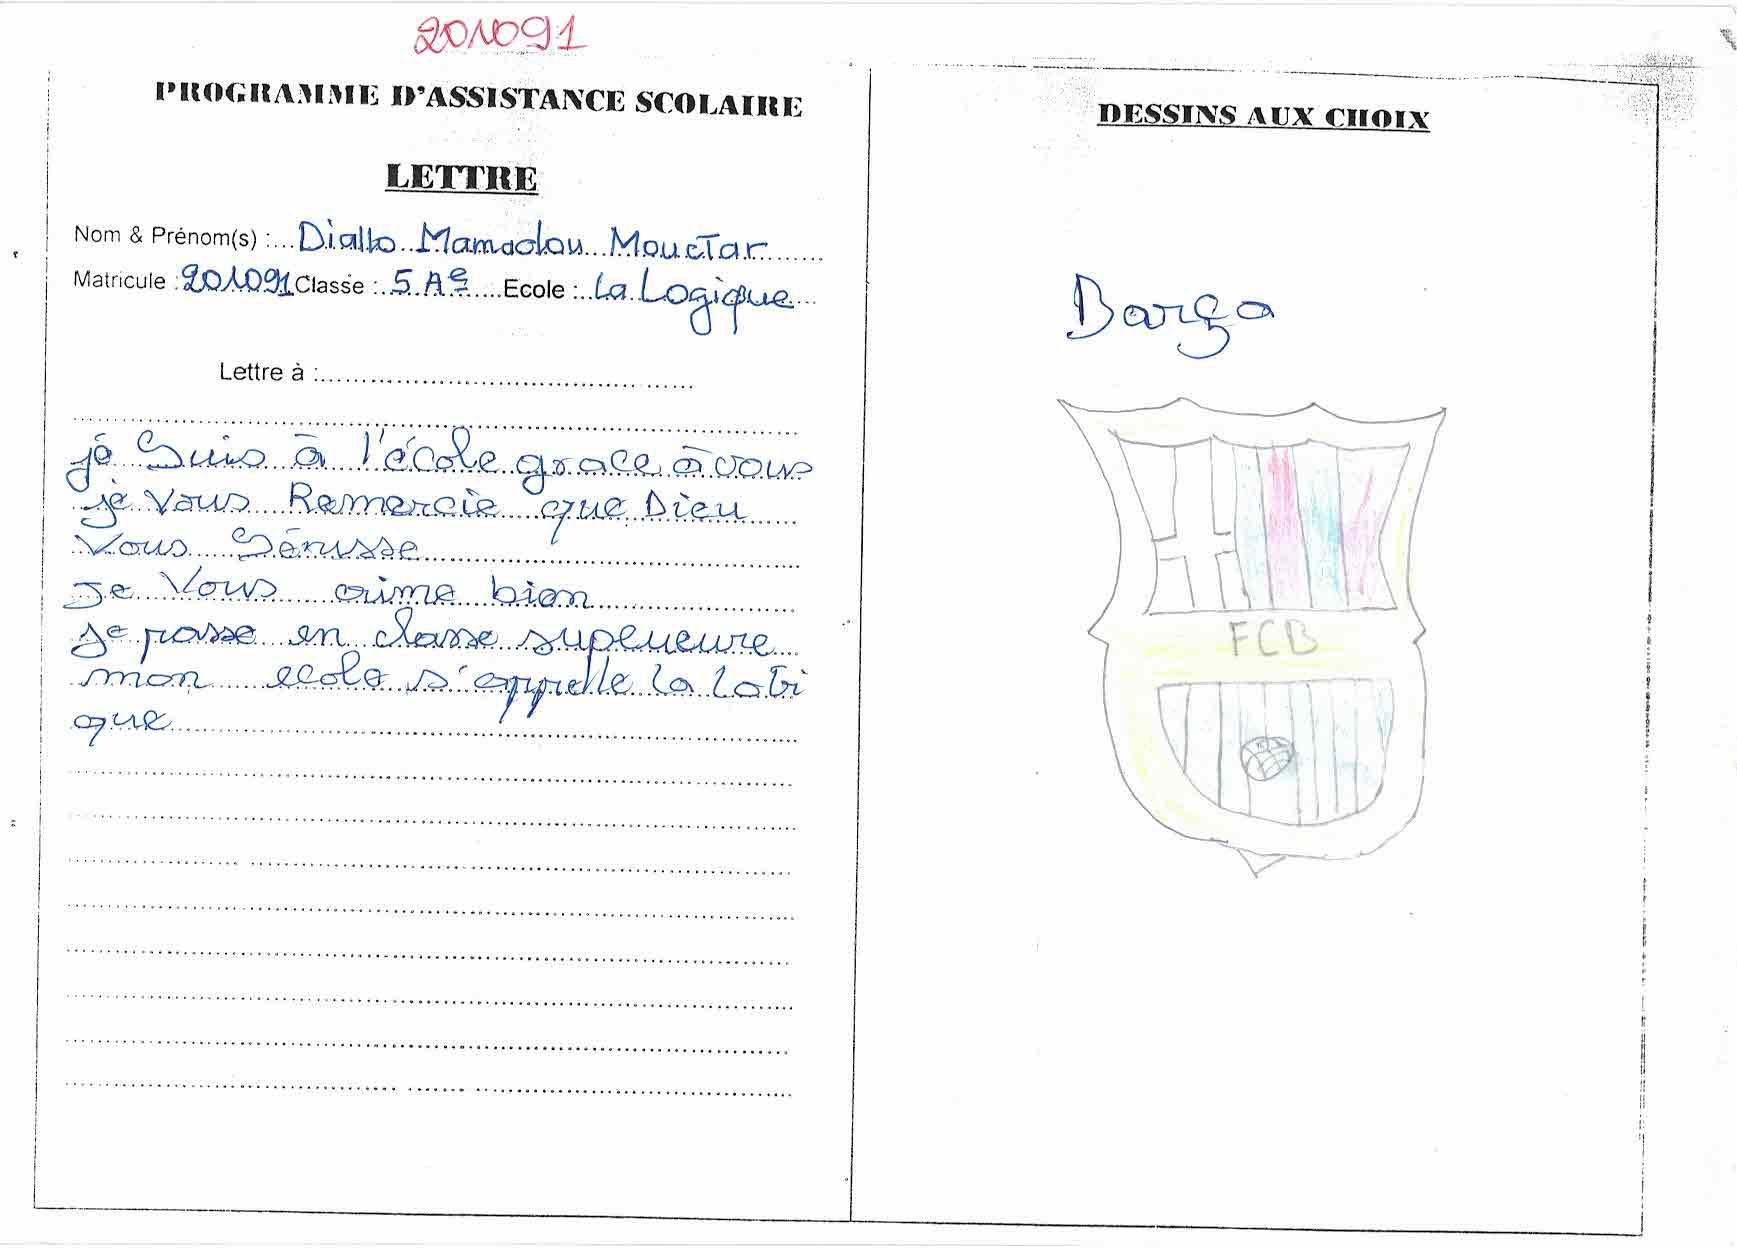 201091
PROGRAMME D'ASSISTANCE SCOLAIRE
LETTRE
Nom & Prénom(s) : Diallo Mamadou Mouctar
Matricule : 201091 Classe : 5 Ae Ecole : La Logique
Lettre à :
je Suis à l'école grace à vous
je Vous Remercie que Dieu
Vous Sérusse
Je Vous aime bien
Je passe en classe superieure
mon ecole s'appelle la Lo
que
DESSINS AUX CHOIX
Barça
FCB